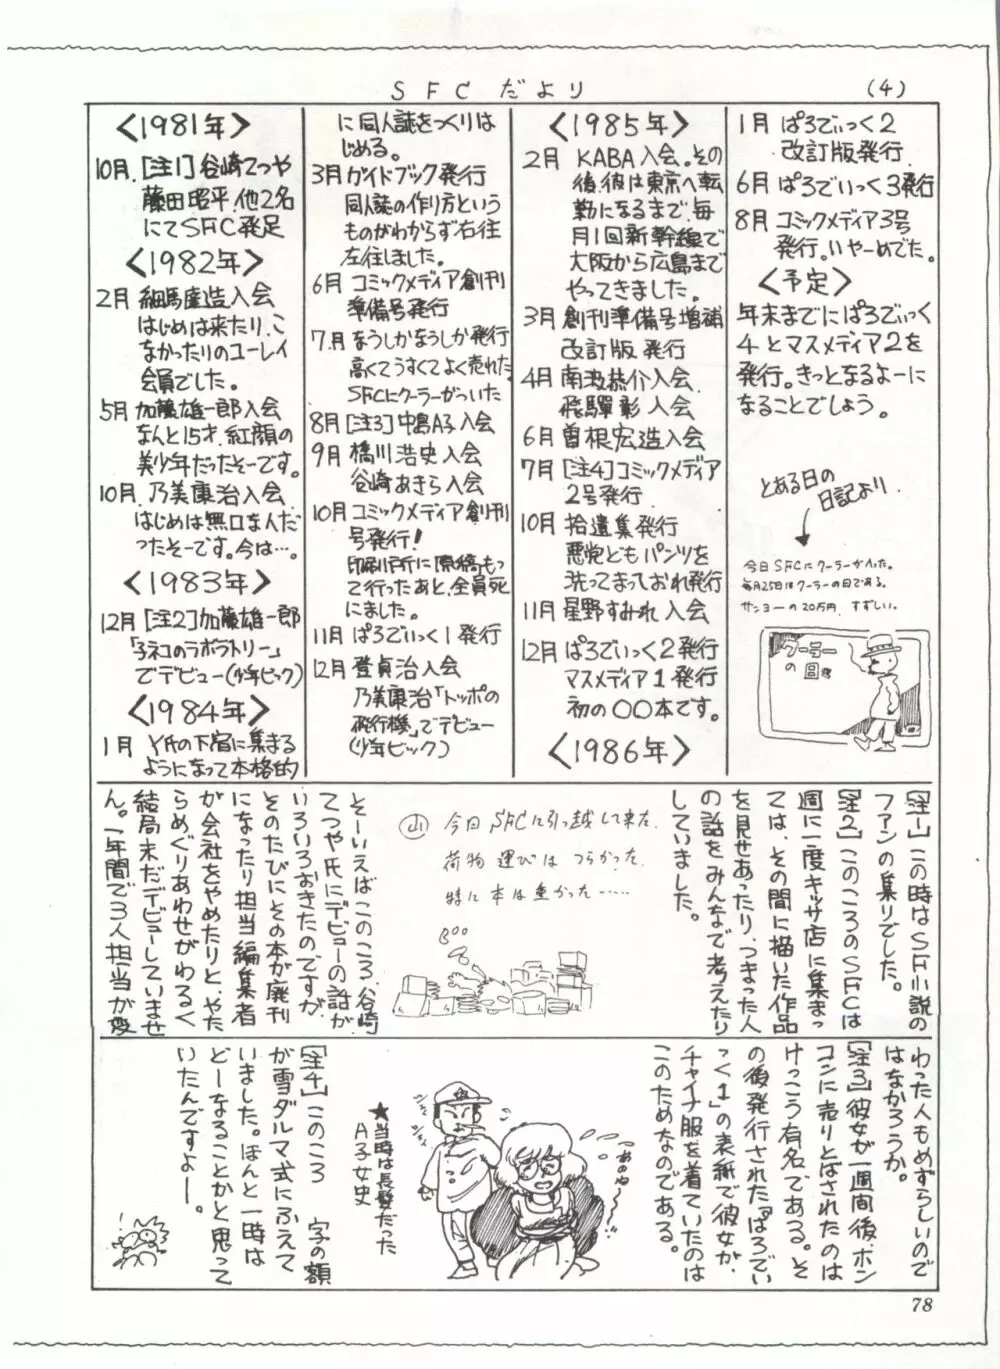 SFCだより
(4)
〈1981年〉
10月.[注1]谷崎てつや
藤田昭平.他2名
にてSFC発足
〈1982年〉
2月 細馬産造入会
はじめは来たり、こ
なかったりのユーレイ
会員でした。
5月 加藤雄一郎入会
なんと15才.紅顔の
美少年だったそーです。
10月.乃美康治入会
はじめは無口な人だ
ったそーです。今は…。
〈1983年〉
12月[注2]加藤雄一郎
「子ネコのラボラトリー」
でデビュー(少年ビック)
〈1984年〉
1月 Y氏の下宿に集まる
ようになって本格的
に同人誌をつくりは
じめる。
3月ガイドブック発行
同人誌の作り方という
ものがわからず右往
左往しました。
6月 コミックメディア創刊
準備号発行
7月 なうしかなうしか発行
高くてうすくてよく売れた。
SFCにクーラーがついた
8月[注3]中島A子入会
9月 橋川浩史入会
谷崎あきら入会
10月コミックメディア創刊
号発行!
印刷所に原稿もっ
て行ったあと、全員死
にました。
11月ぱろでぃっく1発行
12月 登貞治入会
乃美康治「トッポの
飛行機」でデビュー
(少年ビック)
〈1985年〉
2月 KABA入会。その
後、彼は東京へ転
勤になるまで、毎
月1回新幹線で
大阪から広島まで
やってきました。
3月 創刊準備号増補
改訂版発行
4月 南波恭介入会.
飛騨彰入会
6月 曽根宏造入会
7月 [注4]コミックメディア
2号発行
10月 拾遺集発行
悪党どもパンツを
洗ってまっておれ発行
11月 星野すみれ入会
12月 ぱろでぃっく2発行
マスメディア1発行
初の〇〇本です。
〈1986年〉
1月 ぱろでぃっく2
改訂版発行
6月 ぱろでぃっく3発行
8月 コミックメディア3号
発行。いやーめでた。
〈予定〉
年末までにぱろでぃっく
4とマスメディア2を
発行。きっとなるよーに
なることでしょう。
とある日の
日記より
今日SFCにクーラーがついた。
毎月25日はクーラーの日である。
サンヨーの20万円.すずしい。
クーラー
の日
[注1]この時はSF小説の
ファンの集りでした。
[注2]このころのSFCは
週に一度キッサ店に集まっ
ては、その間に描いた作品
を見せあったり、つまった人
の話をみんなで考えたり
していました。
山 今日SFCに引っ越して来た。
荷物運びはつらかった.
特に本は重かった……
そーいえばこのころ、谷崎
てつや氏にデビューの話が
いろいろおきたのですが、
そのたびにその本が廃刊
になったり担当編集者
が会社をやめたりと、やた
らめぐりあわせがわるく
結局未だデビューしていませ
ん。一年間で3人担当が変
わった人もめずらしいので
はなかろうか。
[注3]彼女が一週間後、ポン
コンに売りとばされたのは
けっこう有名である。そ
の後発行された「ぱろでぃ
っく1」の表紙で彼女が、
チャイナ服を着ていたのは
このためなのである。
あのね
★当時は長髪だった
A子女史
[注4]このころ 字の額
が雪ダルマ式にふえて
いました。ほんと一時は
どーなることかと思って
いたんですよー。
78